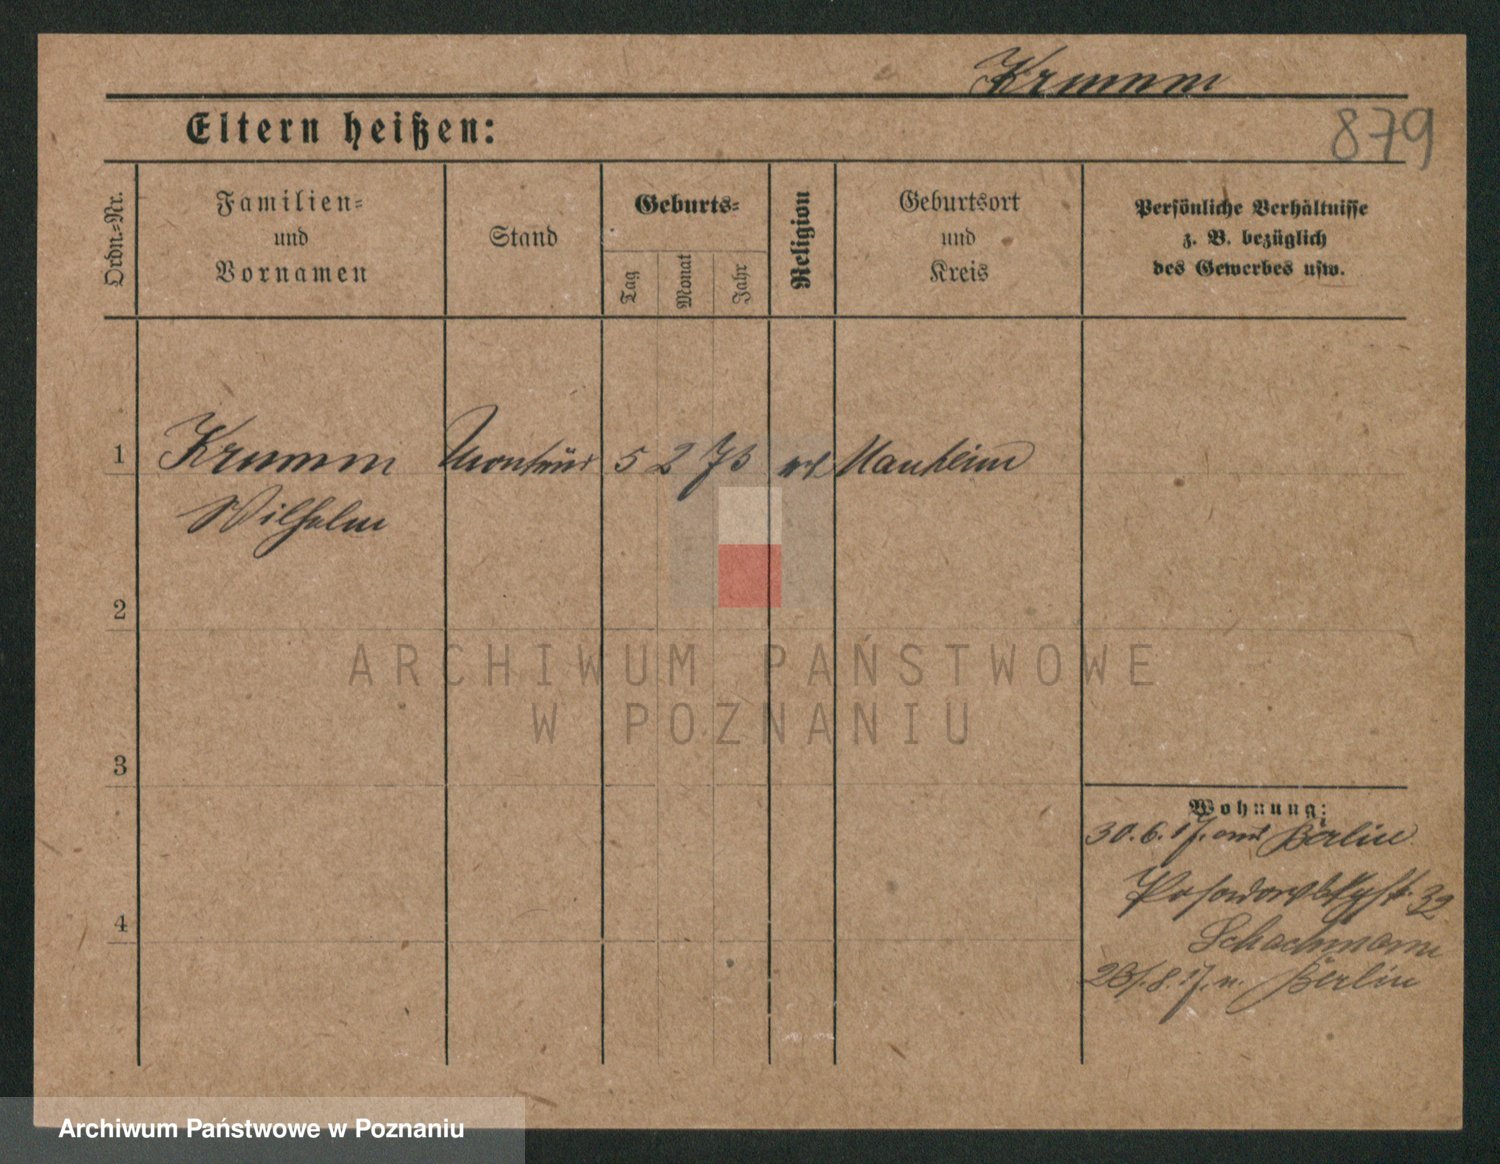 Krumm
879
Eltern heißen:
Ordn.-Nr.
Familien-
und
Vornamen
Stand
Geburts-
Tag
Monat
Jahr
Religion
Geburtsort
und
Kreis
Persönliche Verhältnisse
z. B. bezüglich
des Gewerbes usw.
1 Krumm Monteur 5 2 73 Manheim
Wilhelm
2
ARCHIWUM PAŃSTWOWE
W POZNANIU
3
Wohnung:
30.6.17. Berlin
32
4
Schachmann
8.17. n. Berlin
Archiwum Państwowe w Poznaniu